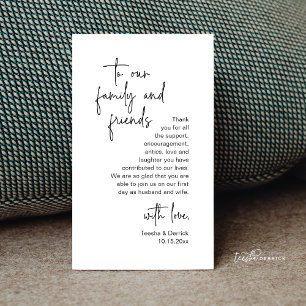 to our
family and
friends
Thank
you for all
the support,
encouragement,
antics, love and
laughter you have
contributed to our lives.
We are so glad that you are
able to join us on our first
day as husband and wife.
with love,
Teesha & Derrick
10.15.20xx
teesha DERRICK